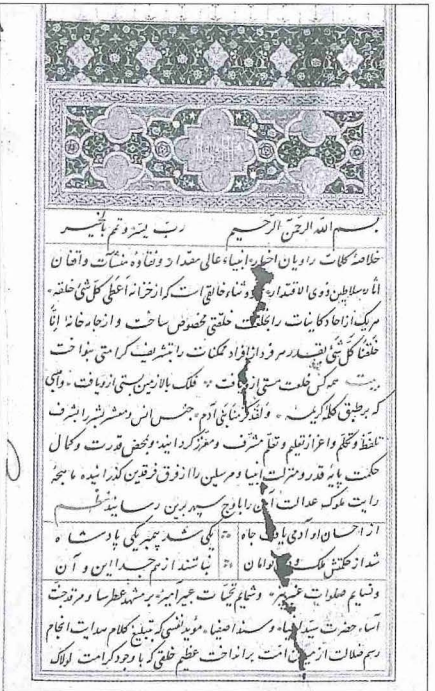 بسم الله الرحمن الرحیم رب یسر و تمم بالخیر
خلاصهٔ کلمات راویان اخبار انبیاء عالی مقدار و نقاوهٔ منشآت واقفان
آثار سلاطین ذوی الاقتدار وثناء خالقی است که از خزانهٔ اعطی کل شئ خلقه
هریک از احاد کاینات را خلعت خلقتی مخصوص ساخت و از جارخانهٔ انا
خلقنا کل شئ بقدر هر فرد از افراد ممکنات را بتشریف کرامتی بنواخت
بیت همه کس خلعت هستی ازو یافت فلک بالا زمین پستی ازو یافت واهبی
که بر طبق کلمهٔ کریمه ولقد کرمنا بنی آدم جنس انس و معشر بشر را بشرف
تلفظ و تکلم و اعزاز تعلیم و تعلم مشرف و معزز گردانید و بمحض قدرت و کمال
حکمت پایهٔ قدر و منزلت انبیا و مرسلین را از فرق فرقدین گذرانیده ماهیچهٔ
رایت ملوک عدالت را باوج سپهر برین رسانید نظم
از احسان او آدمی یافت جاه یکی شد پیمبر یکی پادشاه
شد از حکمتش ملک و توامان نباشند از هم جدا این و آن
و نسایم صلوات عنبر و شمایم تحیات عبیر آمیز بر مشهد عطرسا و مرقد جنت
آسا حضرت سید انبیا و سند اصفیا مؤید نفسی که بتبلیغ کلام هدایت انجام
رسم ضلالت از میان امت برانداخت عظیم خلقی که با وجود کرامت لولاک